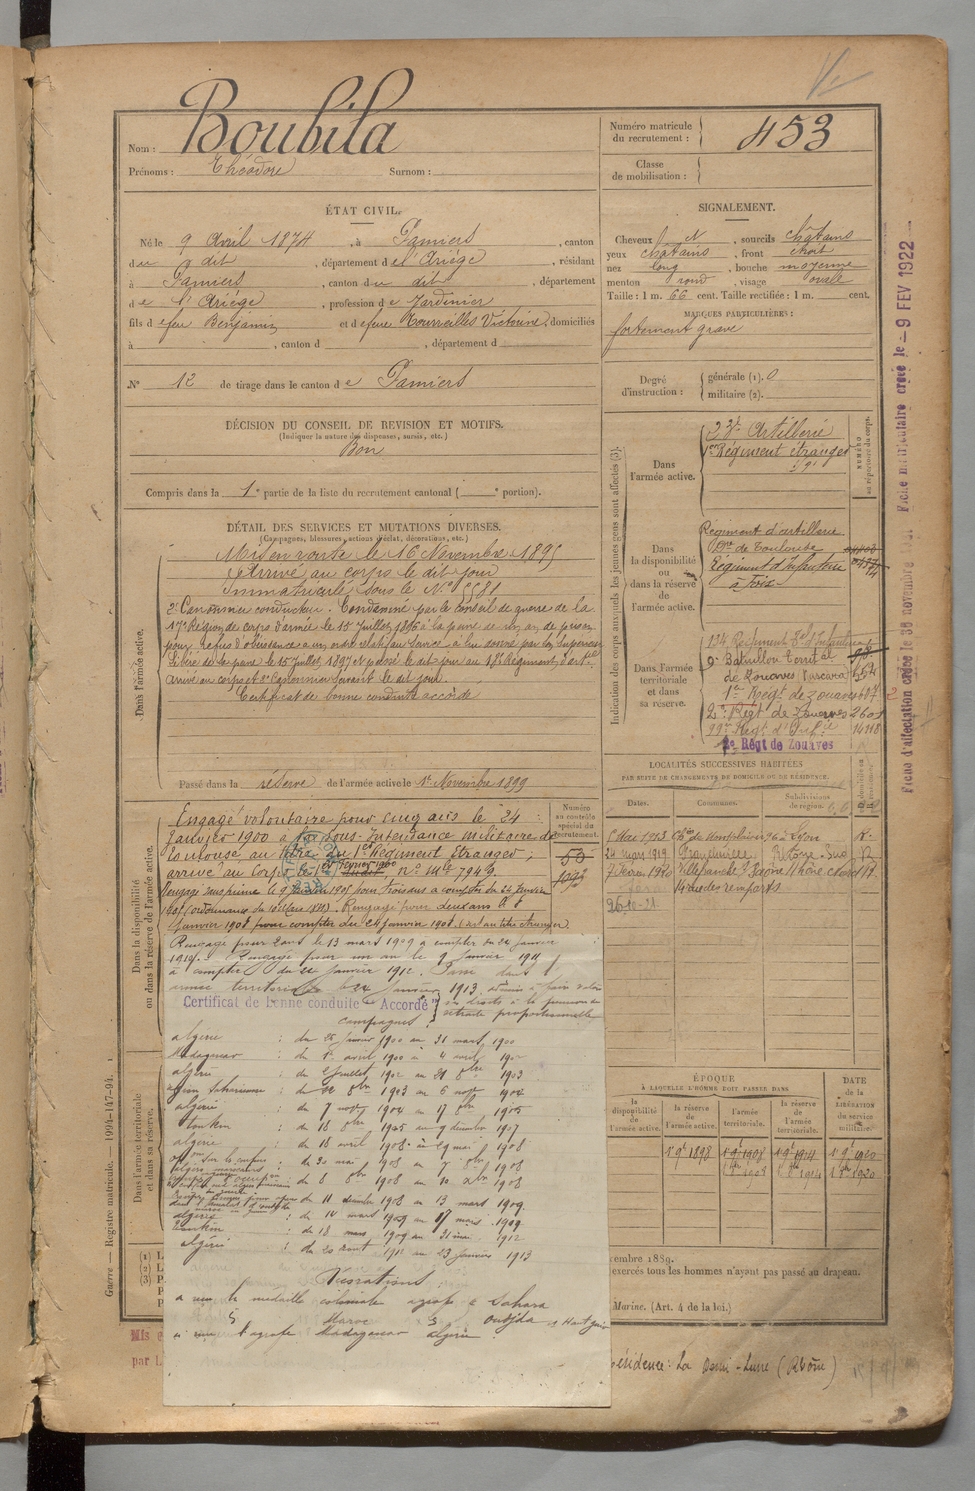 Nom : Boubila
Prénoms : Théodore Surnom :
Numéro matricule du recrutement : 453
Classe de mobilisation :
ÉTAT CIVIL.
Né le 9 Avril 1874, à Pamiers, canton
du dit, département de l'Ariége, résidant
à Pamiers, canton du dit, département
de l'Ariége, profession de Jardinier
fils de feu Benjamin et de feue Tourreilles Victorine, domiciliés
à , canton d , département d
N° 12 de tirage dans le canton de Pamiers
DÉCISION DU CONSEIL DE REVISION ET MOTIFS.
(Indiquer la nature des dispenses, sursis, etc.)
Bon
Compris dans la 1e partie de la liste du recrutement cantonal ( e portion).
SIGNALEMENT.
Cheveux et, sourcils châtains
yeux châtains, front étroit
nez long, bouche moyenne
menton rond, visage ovale
Taille : 1 m. 66 cent. Taille rectifiée : 1 m. cent.
MARQUES PARTICULIÈRES :
fortement gravé
Degré d'instruction : générale (1). 0
militaire (2).
Indication des corps auxquels les jeunes gens sont affectés (3).
NUMÉRO au répertoire du corps.
Dans l'armée active.
Artillerie
1er Régiment étranger
Dans la disponibilité ou dans la réserve de l'armée active.
Régiment d'artillerie
de Toulouse
Régiment d'Infanterie
à Foix
Dans l'armée territoriale et dans sa réserve.
134 Régiment d'Infanterie
9e Bataillon territal
de Zouaves
1er Régt de Zouaves
2e Régt de Zouaves 2601
99e Régt d'Infie 14118
2e Régt de Zouaves
DÉTAIL DES SERVICES ET MUTATIONS DIVERSES.
(Campagnes, blessures, actions d'éclat, décorations, etc.)
Dans l'armée active.
Mis en route le 16 Novembre 1895
Arrivé au corps le dit jour
Immatriculé sous le N° 5581
2e Canonnier conducteur. Condamné par le Conseil de guerre de la
17e Région de corps d'armée le 15 Juillet 1896 à la peine de un an de prison
pour refus d'obéissance à un ordre relatif au service à lui donné par son supérieur
Libéré de la peine le 15 Juillet 1897 passé le dit jour au 18e Régiment d'artie
arrivé au corps et 2e Canonnier servant le dit jour.
Certificat de bonne conduite accordé
Passé dans la réserve de l'armée active le 1er Novembre 1899
Dans la disponibilité ou dans la réserve de l'armée active.
Numéro au contrôle spécial du recrutement.
Engagé volontaire pour cinq ans le 24
Janvier 1900 à la Sous-Intendance militaire de
Toulouse au titre du 1er Régiment Etranger,
arrivé au Corps le 1er février 1900, n° mle 7949.
Rengagé pour deux ans le
janvier 1908 pour compter du 24 janvier 1908
Rengagé pour 2 ans le 13 mars 1909 à compter du 24 janvier
1910. Rengagé pour un an le 9 Janvier 1911
à compter du 24 janvier 1912. Passé dans l'
armée territoriale le 24 Janvier 1913
Certificat de bonne conduite "Accordé"
ses droits à la pension de
retraite proportionnelle
Campagnes :
algérie : du janvier 1900 au 31 mars 1900
Madagascar : du 1er avril 1900 à 4 avril 1902
algérie : du juillet 1902 au 21 8bre 1903
Région Saharienne : du 22 8bre 1903 au 6 novb 1904
algérie : du 7 novb 1904 au 17 8bre 1905
tonkin : du 18 8bre 1905 au 9 décembre 1907
algérie : du 18 avril 1908 au 29 mai 1908
du 30 mai 1908 au 7 8bre 1908
du 8 8bre 1908 au 10 xbre 1908
du 11 décembre 1908 au 13 mars 1909
algérie : du 14 mars 1909 au 17 mars 1909
tonkin : du 18 mars 1909 au 1912
algérie : du 20 aout 1911 au 23 janvier 1913
Décorations
a reçu la médaille coloniale agrafe Sahara
Maroc Oudjda
a reçu l'agrafe Madagascar algérie
Dans l'armée territoriale et dans sa réserve.
LOCALITÉS SUCCESSIVES HABITÉES
PAR SUITE DE CHANGEMENTS DE DOMICILE OU DE RÉSIDENCE.
Dates. Communes. Subdivisions de région.
Mai 1913 Ch. de Montplaisir 96 à Lyon R.
24 mars 1919 R
7 Février 1920 Villefranche Rhône
14 rue des remparts
26.10.21
ÉPOQUE
À LAQUELLE L'HOMME DOIT PASSER DANS
DATE de la LIBÉRATION du service militaire.
la disponibilité de l'armée active. la réserve de l'armée active. l'armée territoriale. la réserve de l'armée territoriale.
1 9e 1898 1 9e 1908 1 9e 1914 1 9e 1920
embre 1889.
exercés tous les hommes n'ayant pas passé au drapeau.
Marine. (Art. 4 de la loi.)
résidence : La Demi-Lune (Rhône)
(1)
(2)
(3)
Mis e
par l
Guerre — Registre matricule. — 1994-147-94.
Fiche d'affectation créée le 30 novembre Fiche matriculaire créée le – 9 FEV 1922